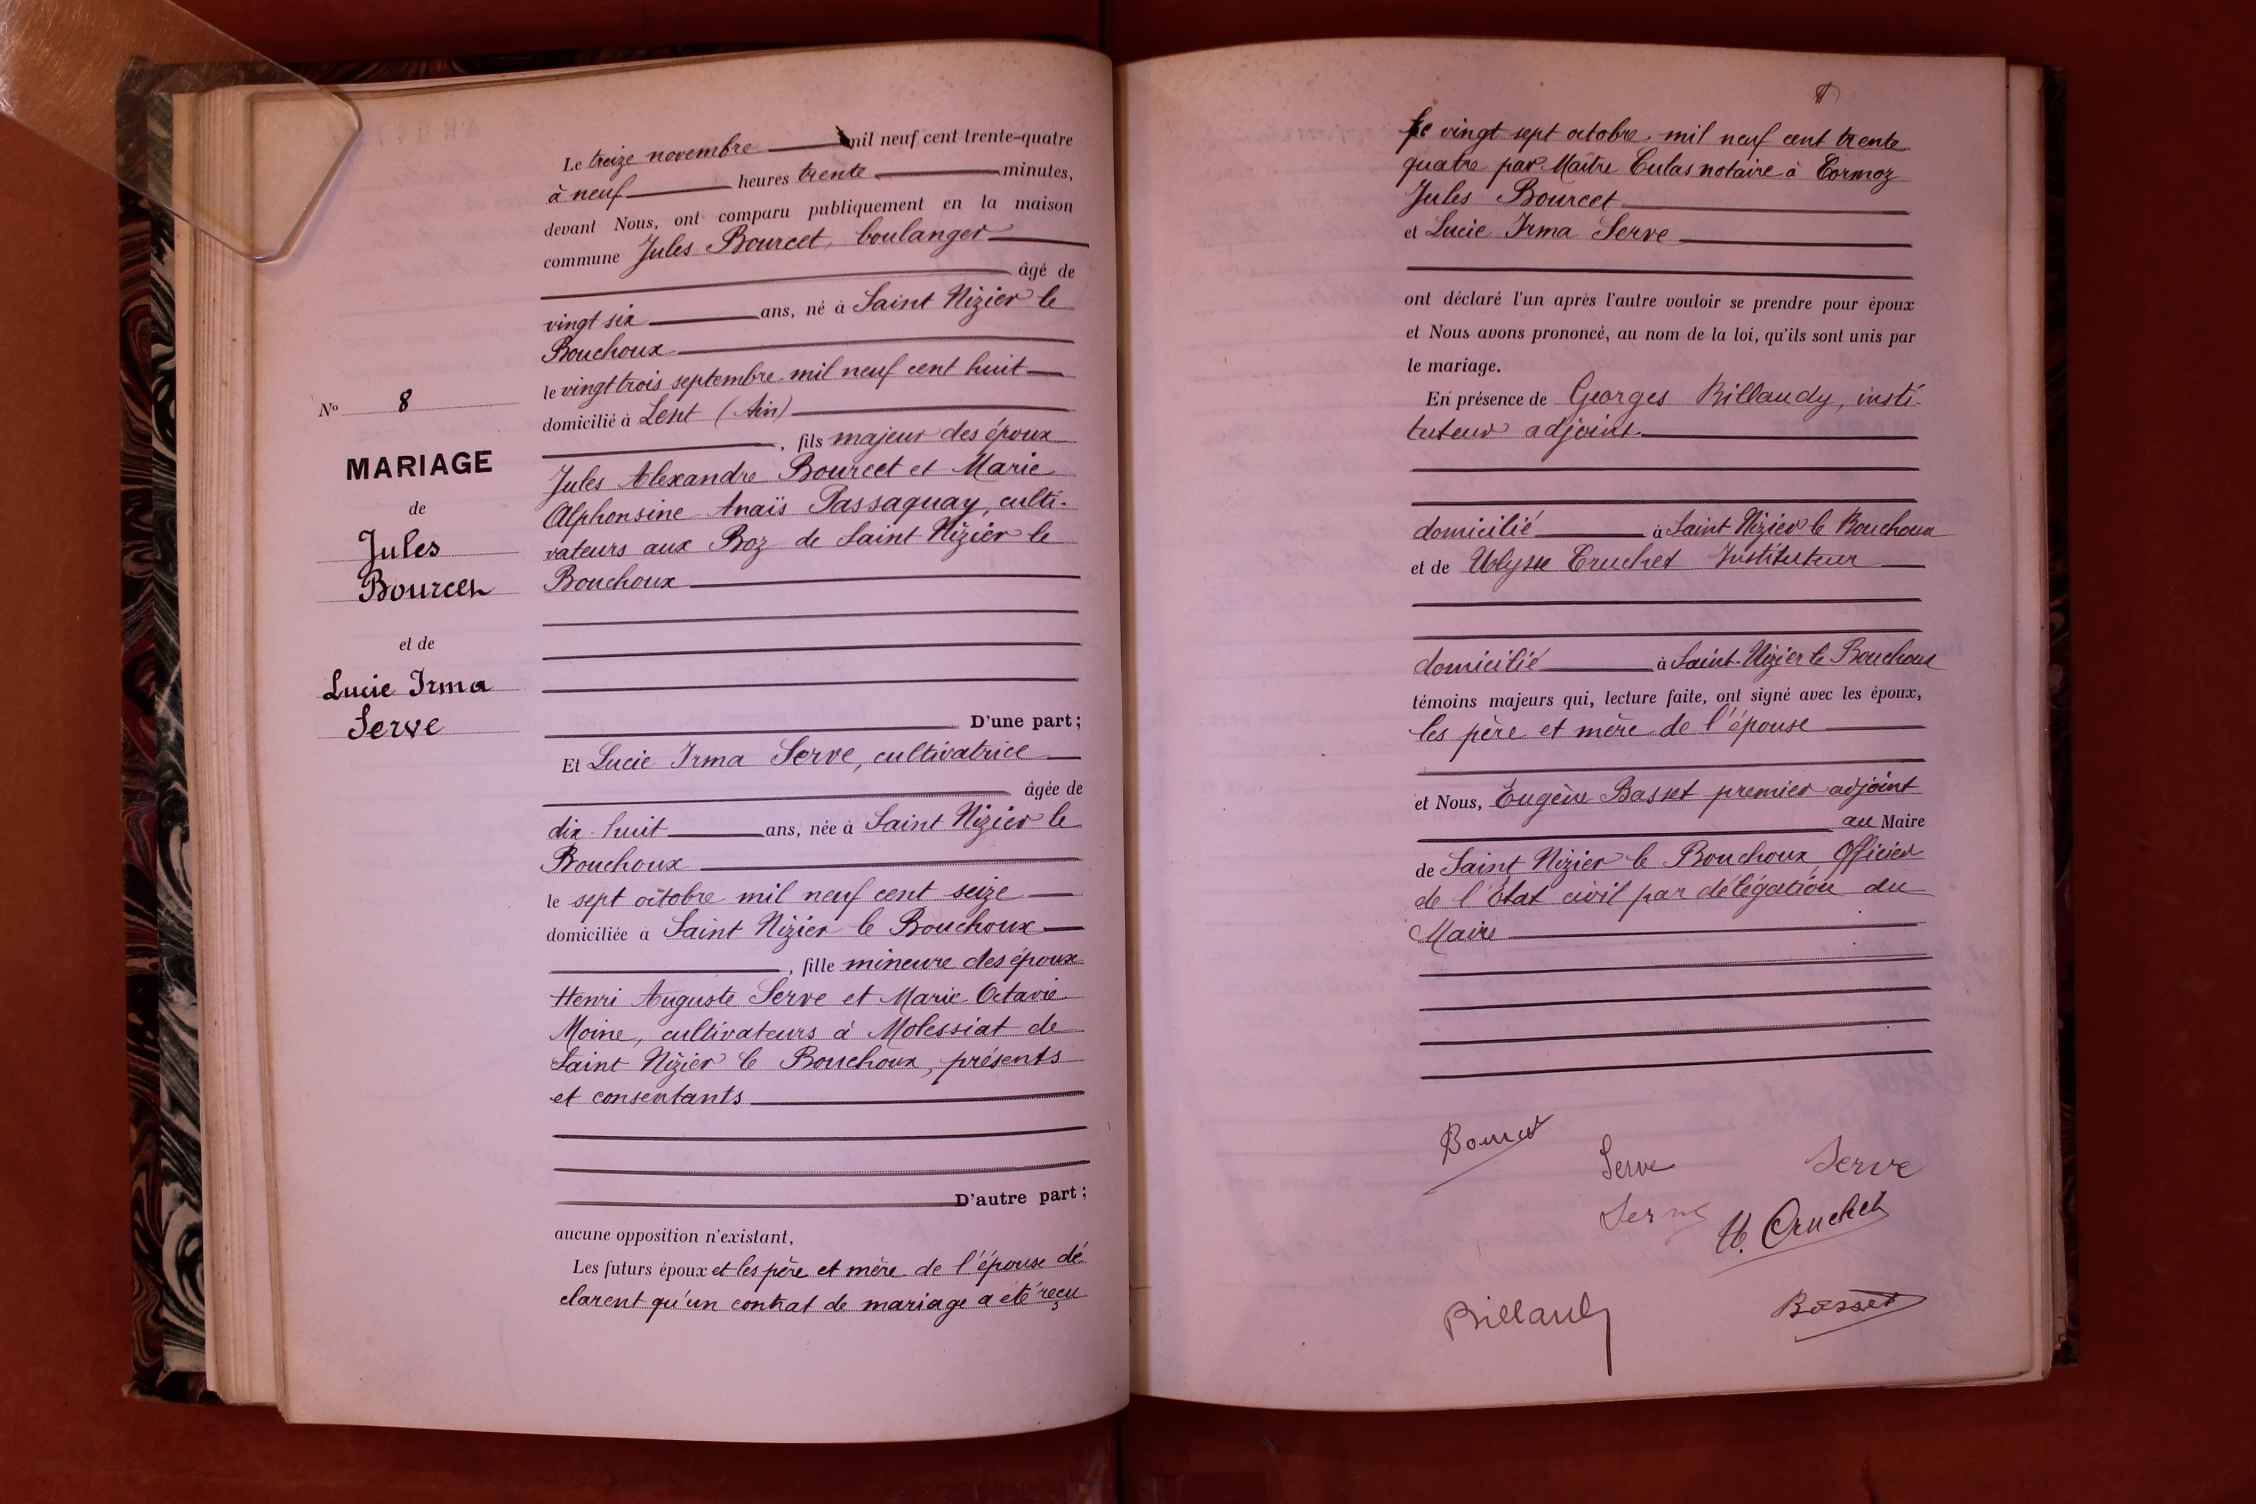 Le treize novembre mil neuf cent trente-quatre
à neuf heures trente minutes,
devant Nous, ont comparu publiquement en la maison
commune Jules Bourcet, boulanger
âgé de
vingt six ans, né à Saint Nizier le
Bouchoux
le vingt trois septembre mil neuf cent huit
domicilié à Lent (Ain)
, fils majeur des époux
Jules Alexandre Bourcet et Marie
Alphonsine Anaïs Passaquay, culti-
vateurs aux Boz de Saint Nizier le
Bouchoux
D'une part;
Et Lucie Irma Serve, cultivatrice
âgée de
dix-huit ans, née à Saint Nizier le
Bouchoux
le sept octobre mil neuf cent seize
domiciliée à Saint Nizier le Bouchoux
, fille mineure des époux
Henri Auguste Serve et Marie Octavie
Moine, cultivateurs à Molessiat de
Saint Nizier le Bouchoux, présents
et consentants
D'autre part;
aucune opposition n'existant,
Les futurs époux et les père et mère de l'épouse dé-
clarent qu'un contrat de mariage a été reçu
No 8
MARIAGE
de
Jules
Bourcet
et de
Lucie Irma
Serve
le vingt sept octobre mil neuf cent trente
quatre par Maître Culas notaire à Cormoz
Jules Bourcet
et Lucie Irma Serve
ont déclaré l'un après l'autre vouloir se prendre pour époux
et Nous avons prononcé, au nom de la loi, qu'ils sont unis par
le mariage.
En présence de Georges Billaudy, insti-
tuteur adjoint
domicilié à Saint Nizier le Bouchoux
et de Ulysse Cruchet Instituteur
domicilié à Saint-Nizier le Bouchoux
témoins majeurs qui, lecture faite, ont signé avec les époux,
les père et mère de l'épouse
et Nous, Eugène Basset premier adjoint
au Maire
de Saint Nizier le Bouchoux Officier
de l'Etat civil par délégation du
Maire
Bourcet
Serve Serve
Serve U. Cruchet
Billaudy Basset